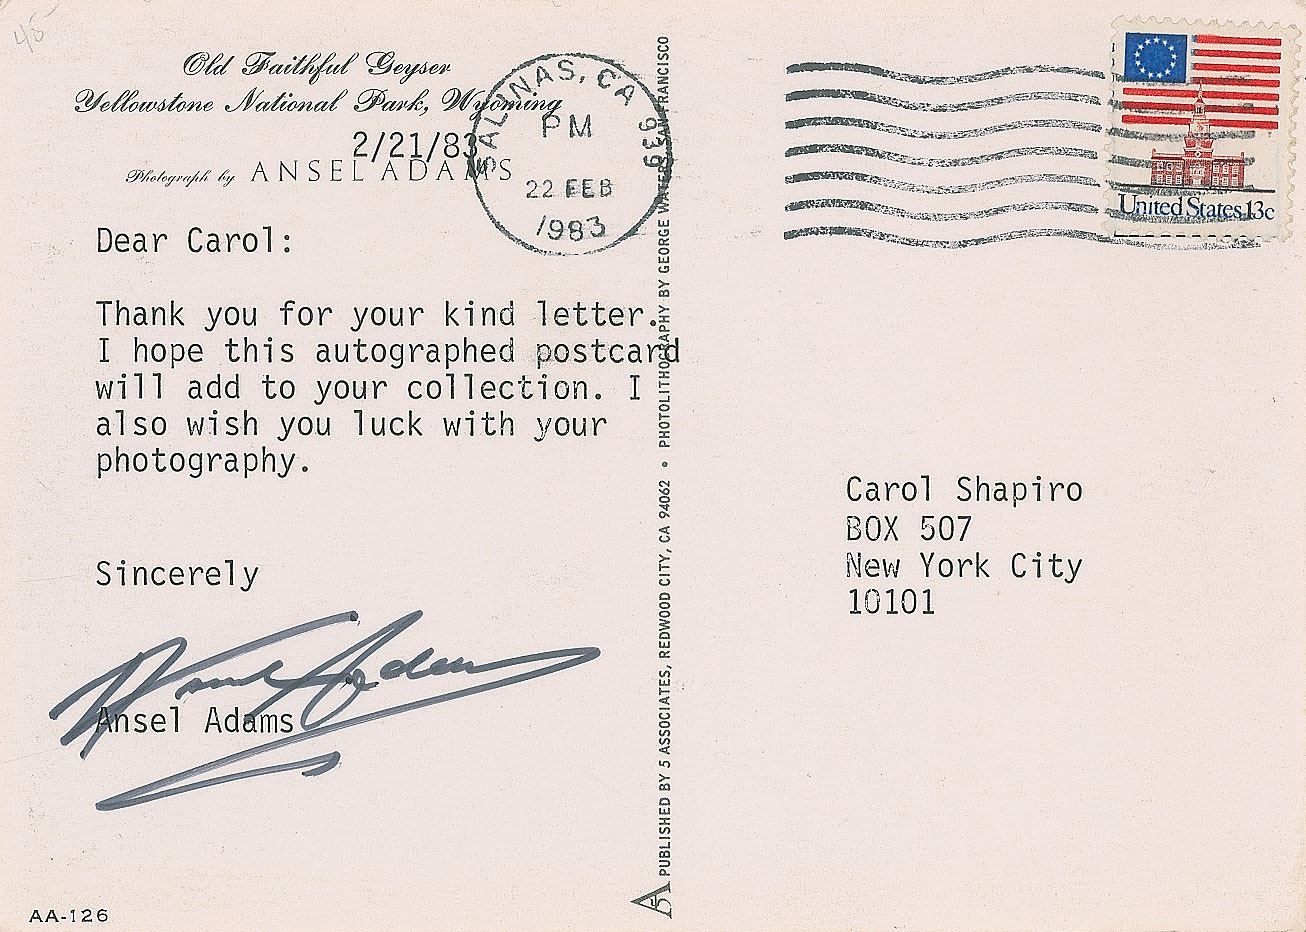 45
Old Faithful Geyser
Yellowstone National Park, Wyoming
2/21/83
Photograph by ANSEL ADAMS
SALINAS, CA 939
PM
22 FEB
1983
United States 13c
Dear Carol:
Thank you for your kind letter.
I hope this autographed postcard
will add to your collection. I
also wish you luck with your
photography.
Sincerely
Ansel Adams
Ansel Adams
AA-126
A5 PUBLISHED BY 5 ASSOCIATES, REDWOOD CITY, CA 94062 • PHOTOLITHOGRAPHY BY GEORGE WATERS, SAN FRANCISCO
Carol Shapiro
BOX 507
New York City
10101